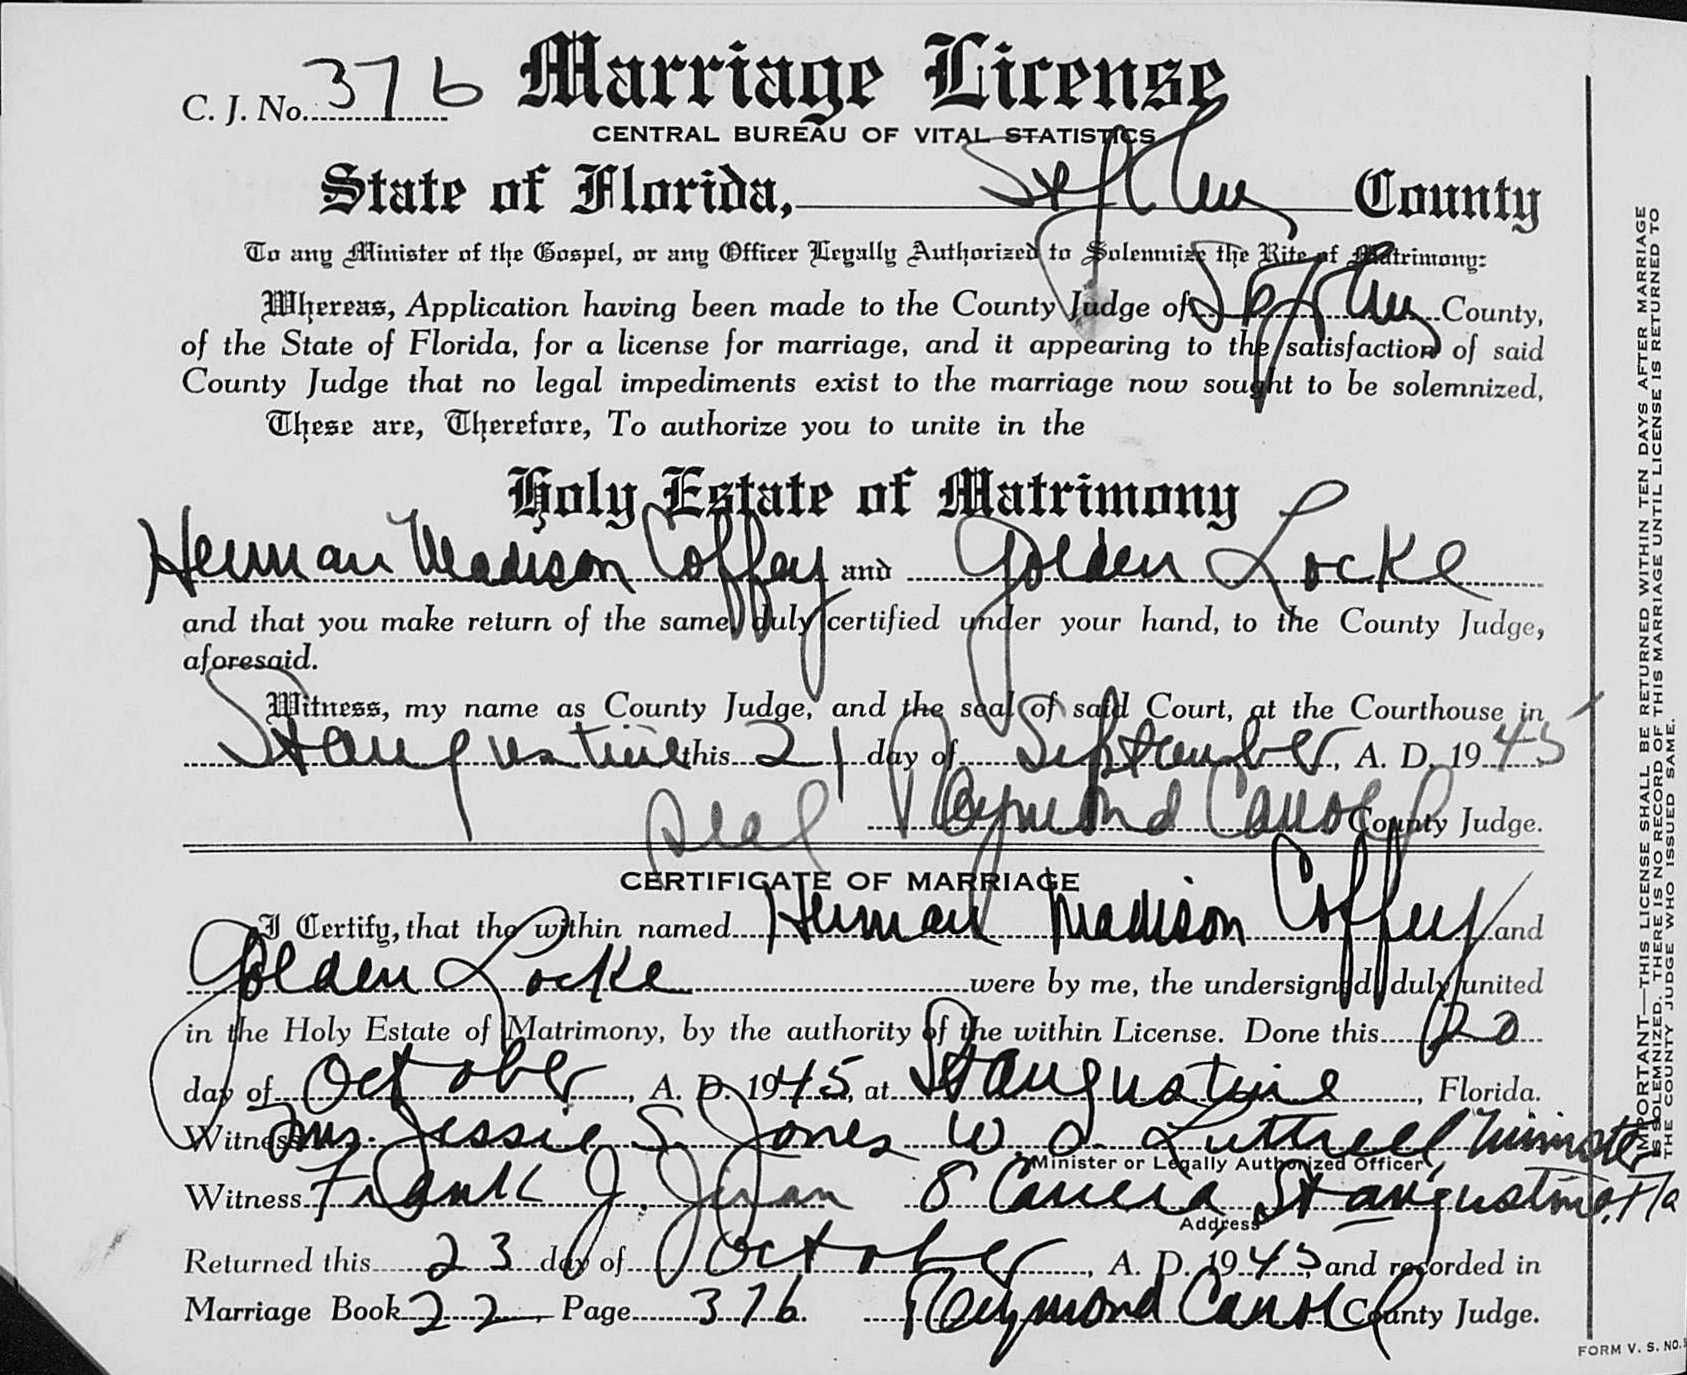 C. J. No. 376 Marriage License
CENTRAL BUREAU OF VITAL STATISTICS
State of Florida, County
To any Minister of the Gospel, or any Officer Legally Authorized to Solemnize the Rite of Matrimony:
Whereas, Application having been made to the County Judge of County,
of the State of Florida, for a license for marriage, and it appearing to the satisfaction of said
County Judge that no legal impediments exist to the marriage now sought to be solemnized,
These are, Therefore, To authorize you to unite in the
Holy Estate of Matrimony
Herman Madison Coffey and Golden Locke
and that you make return of the same, duly certified under your hand, to the County Judge,
aforesaid.
Witness, my name as County Judge, and the seal of said Court, at the Courthouse in
St Augustine this 21 day of September, A. D. 1945
Seal Raymond County Judge.
CERTIFICATE OF MARRIAGE
I Certify, that the within named Herman Madison Coffey and
Golden Locke were by me, the undersigned, duly united
in the Holy Estate of Matrimony, by the authority of the within License. Done this 20
day of October, A. D. 1945, at St Augustine, Florida.
Witness Mrs. Jessie S. Jones W O Luttrell Minister
Minister or Legally Authorized Officer
Witness Frank J. 8 St Augustine, Fla
Address
Returned this 23 day of October, A. D. 1945, and recorded in
Marriage Book 22, Page 376. Raymond County Judge.
IMPORTANT—THIS LICENSE SHALL BE RETURNED WITHIN TEN DAYS AFTER MARRIAGE
IS SOLEMNIZED. THERE IS NO RECORD OF THIS MARRIAGE UNTIL LICENSE IS RETURNED TO
THE COUNTY JUDGE WHO ISSUED SAME.
FORM V. S. NO.